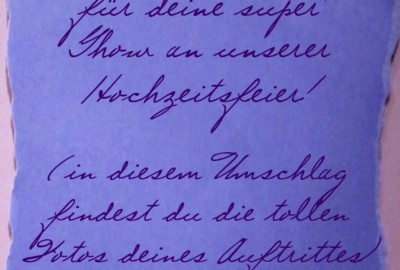 für deine super
Show an unserer
Hochzeitsfeier!
(in diesem Umschlag
findest du die tollen
Fotos deines Auftrittes)